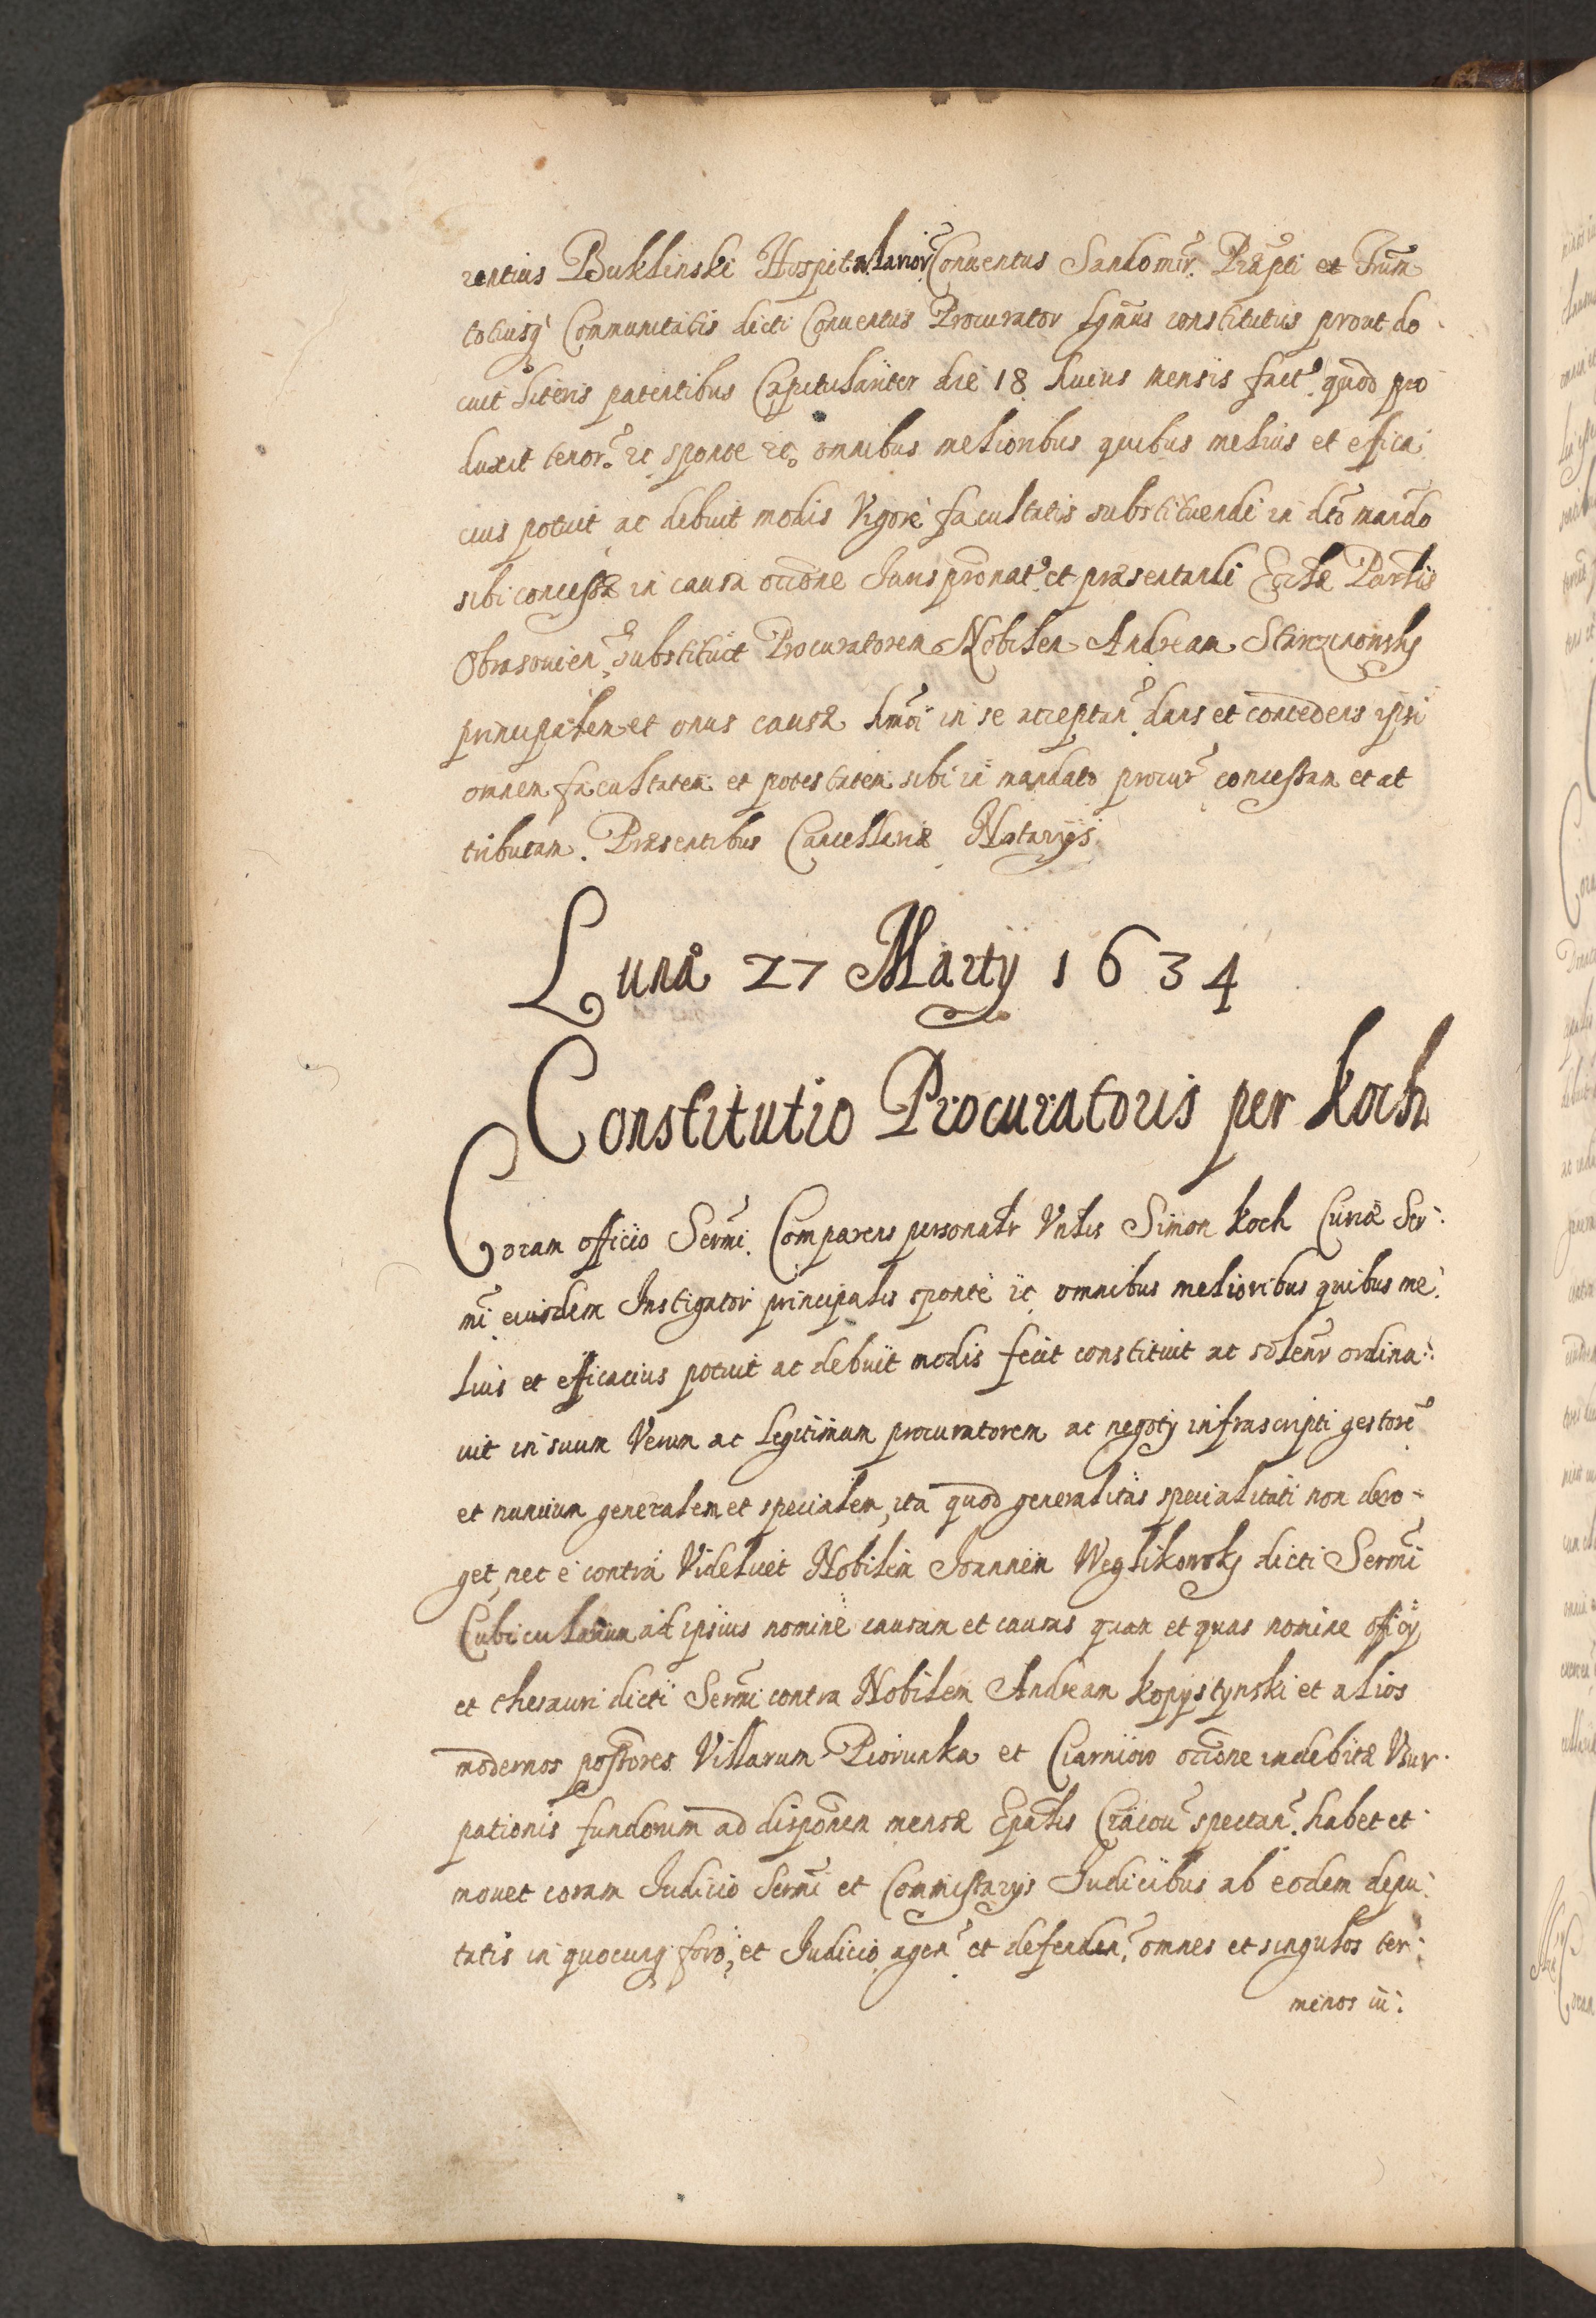 rentius Buklinski Hospitalarior Conuentus Sandomir. Præpti et Frum
totiusq Communitatis dicti Conuentus Procurator lgmus constitutus prout do
cuit literis patentibus Capitulariter die 18 huius mensis fact. quod pro
duxit tenor. etc sponte etc. omnibus melioribus quibus melius et effica
cius potuit ac debuit modis Vigore facultatis substituendi in dto mando
sibi concessæ in causa occione Juris pronat. et præsentandi Ecclæ Parlis
Obrasouien. substituit Procuratorem Nobilem Andream Starczinowsky
principalem et onus causæ hmoi in se acceptan. dans et concedens ipsi
omnem facultatem et potestatem sibi in mandato procur concessam et at
tributam. Præsentibus Cancellariæ Notarijs.
Luna 27 Martij 1634
Constitutio Procuratoris per Koch
Coram officio Sermi. Comparens personalr Vntlis Simon Koch Curiæ Ser
mi eiusdem Instigator principalis sponte etc omnibus melioribus quibus me
lius et efficacius potuit ac debuit modis fecit constituit ac solenr ordina
uit in suum Verum ac Legitimum procuratorem ac negotij infrascripti gestore
et nuncium generalem et specialem, ita quod generalitas specialitati non dero-
get, nec e contra Videlicet Nobilem Joannem Weglikowsky dicti Sermi
Cubicularium ad ipsius nomine causam et causas quam et quas nomine officij
et thesauri dicti Sermi contra Nobilem Andream Kopystynski et alios
modernos possores Villarum Piorunka et Czarniow occione indebitæ Vsur
pationis fundorum ad disponen mensæ Epalis Cracou spectan. habet et
mouet coram Judicio Sermi et Commissarijs Judicibus ab eodem depu
tatis in quocunq foro, et Judicio agen et defenden. omnes et singulos ter
minos iu: